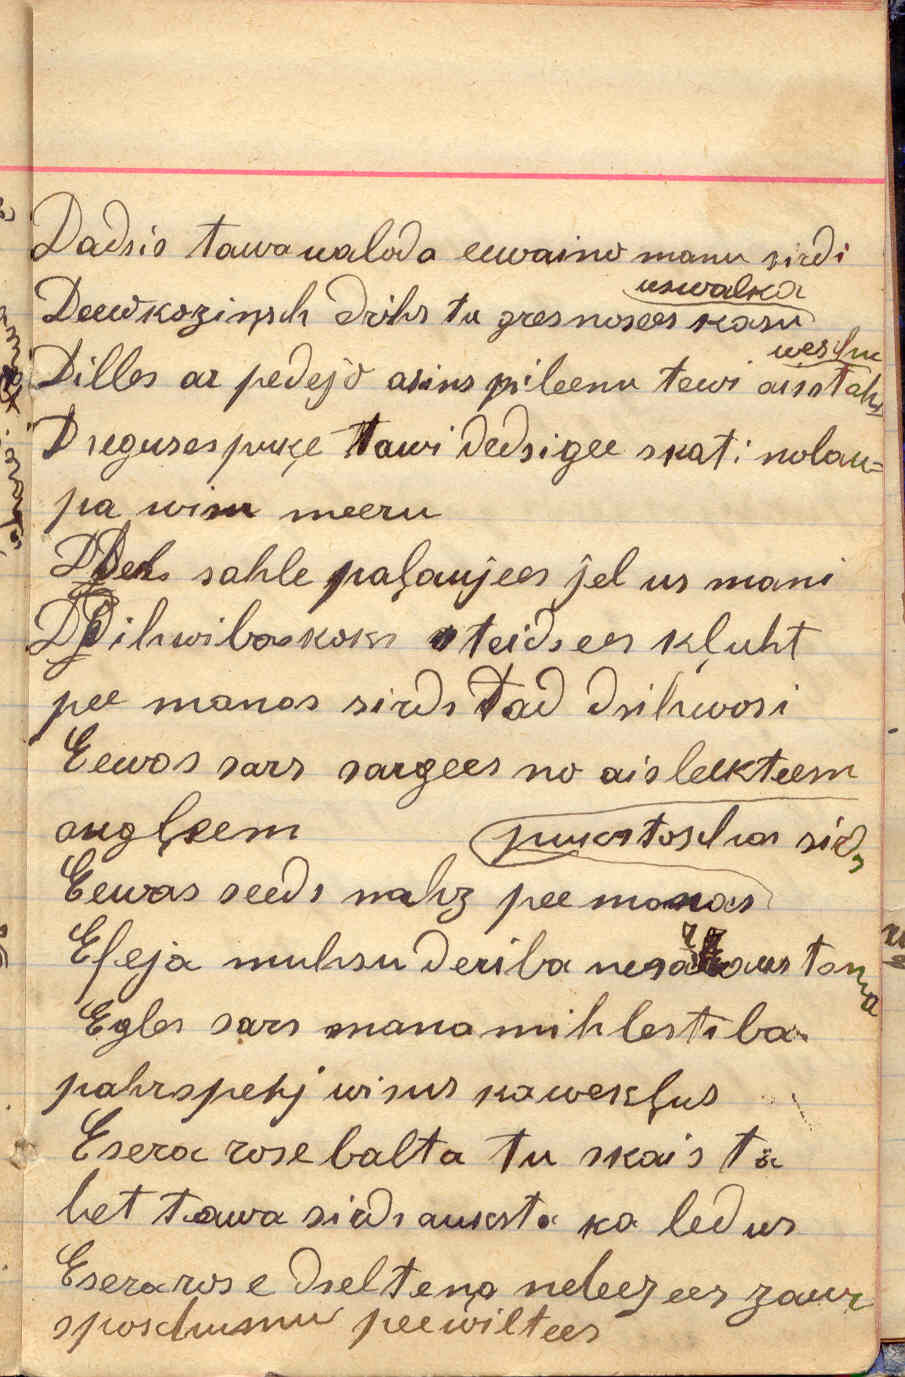 Dadsis tawa waloda eewaino manu sirdi
uswalka
Deewkozinsch drihs tu gresnosees kasu
weschu
Dilles ar pedejo asins pileenu tewi aisstahw
Dsegusespuķe tawi dedsigee skati nolau=
pa wim meeru
Dsels sahle paļaujees jel us mani
Dsihwibaskoks steidsees kļuht
pee manas sirds tad dsihwosi
Eewas sars sargees no aisleekteem
augļeem
pukstoschas sirds
Eewas seeds nahz pee manas
Efeja muhsu deriba nesaraustama
Egles sars mana mihlestiba
pahrspehj wisus kawekļus
Esera rose balta tu skaista
bet tawa sirds auksta ka ledus
Esera rose dseltena nebeezees zaur
sposchumu peewiltees